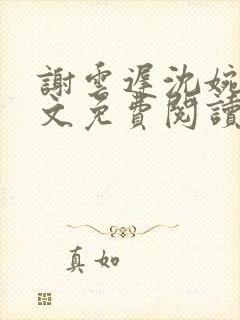 謝雲遲沈婉
文免費閱讀
真如